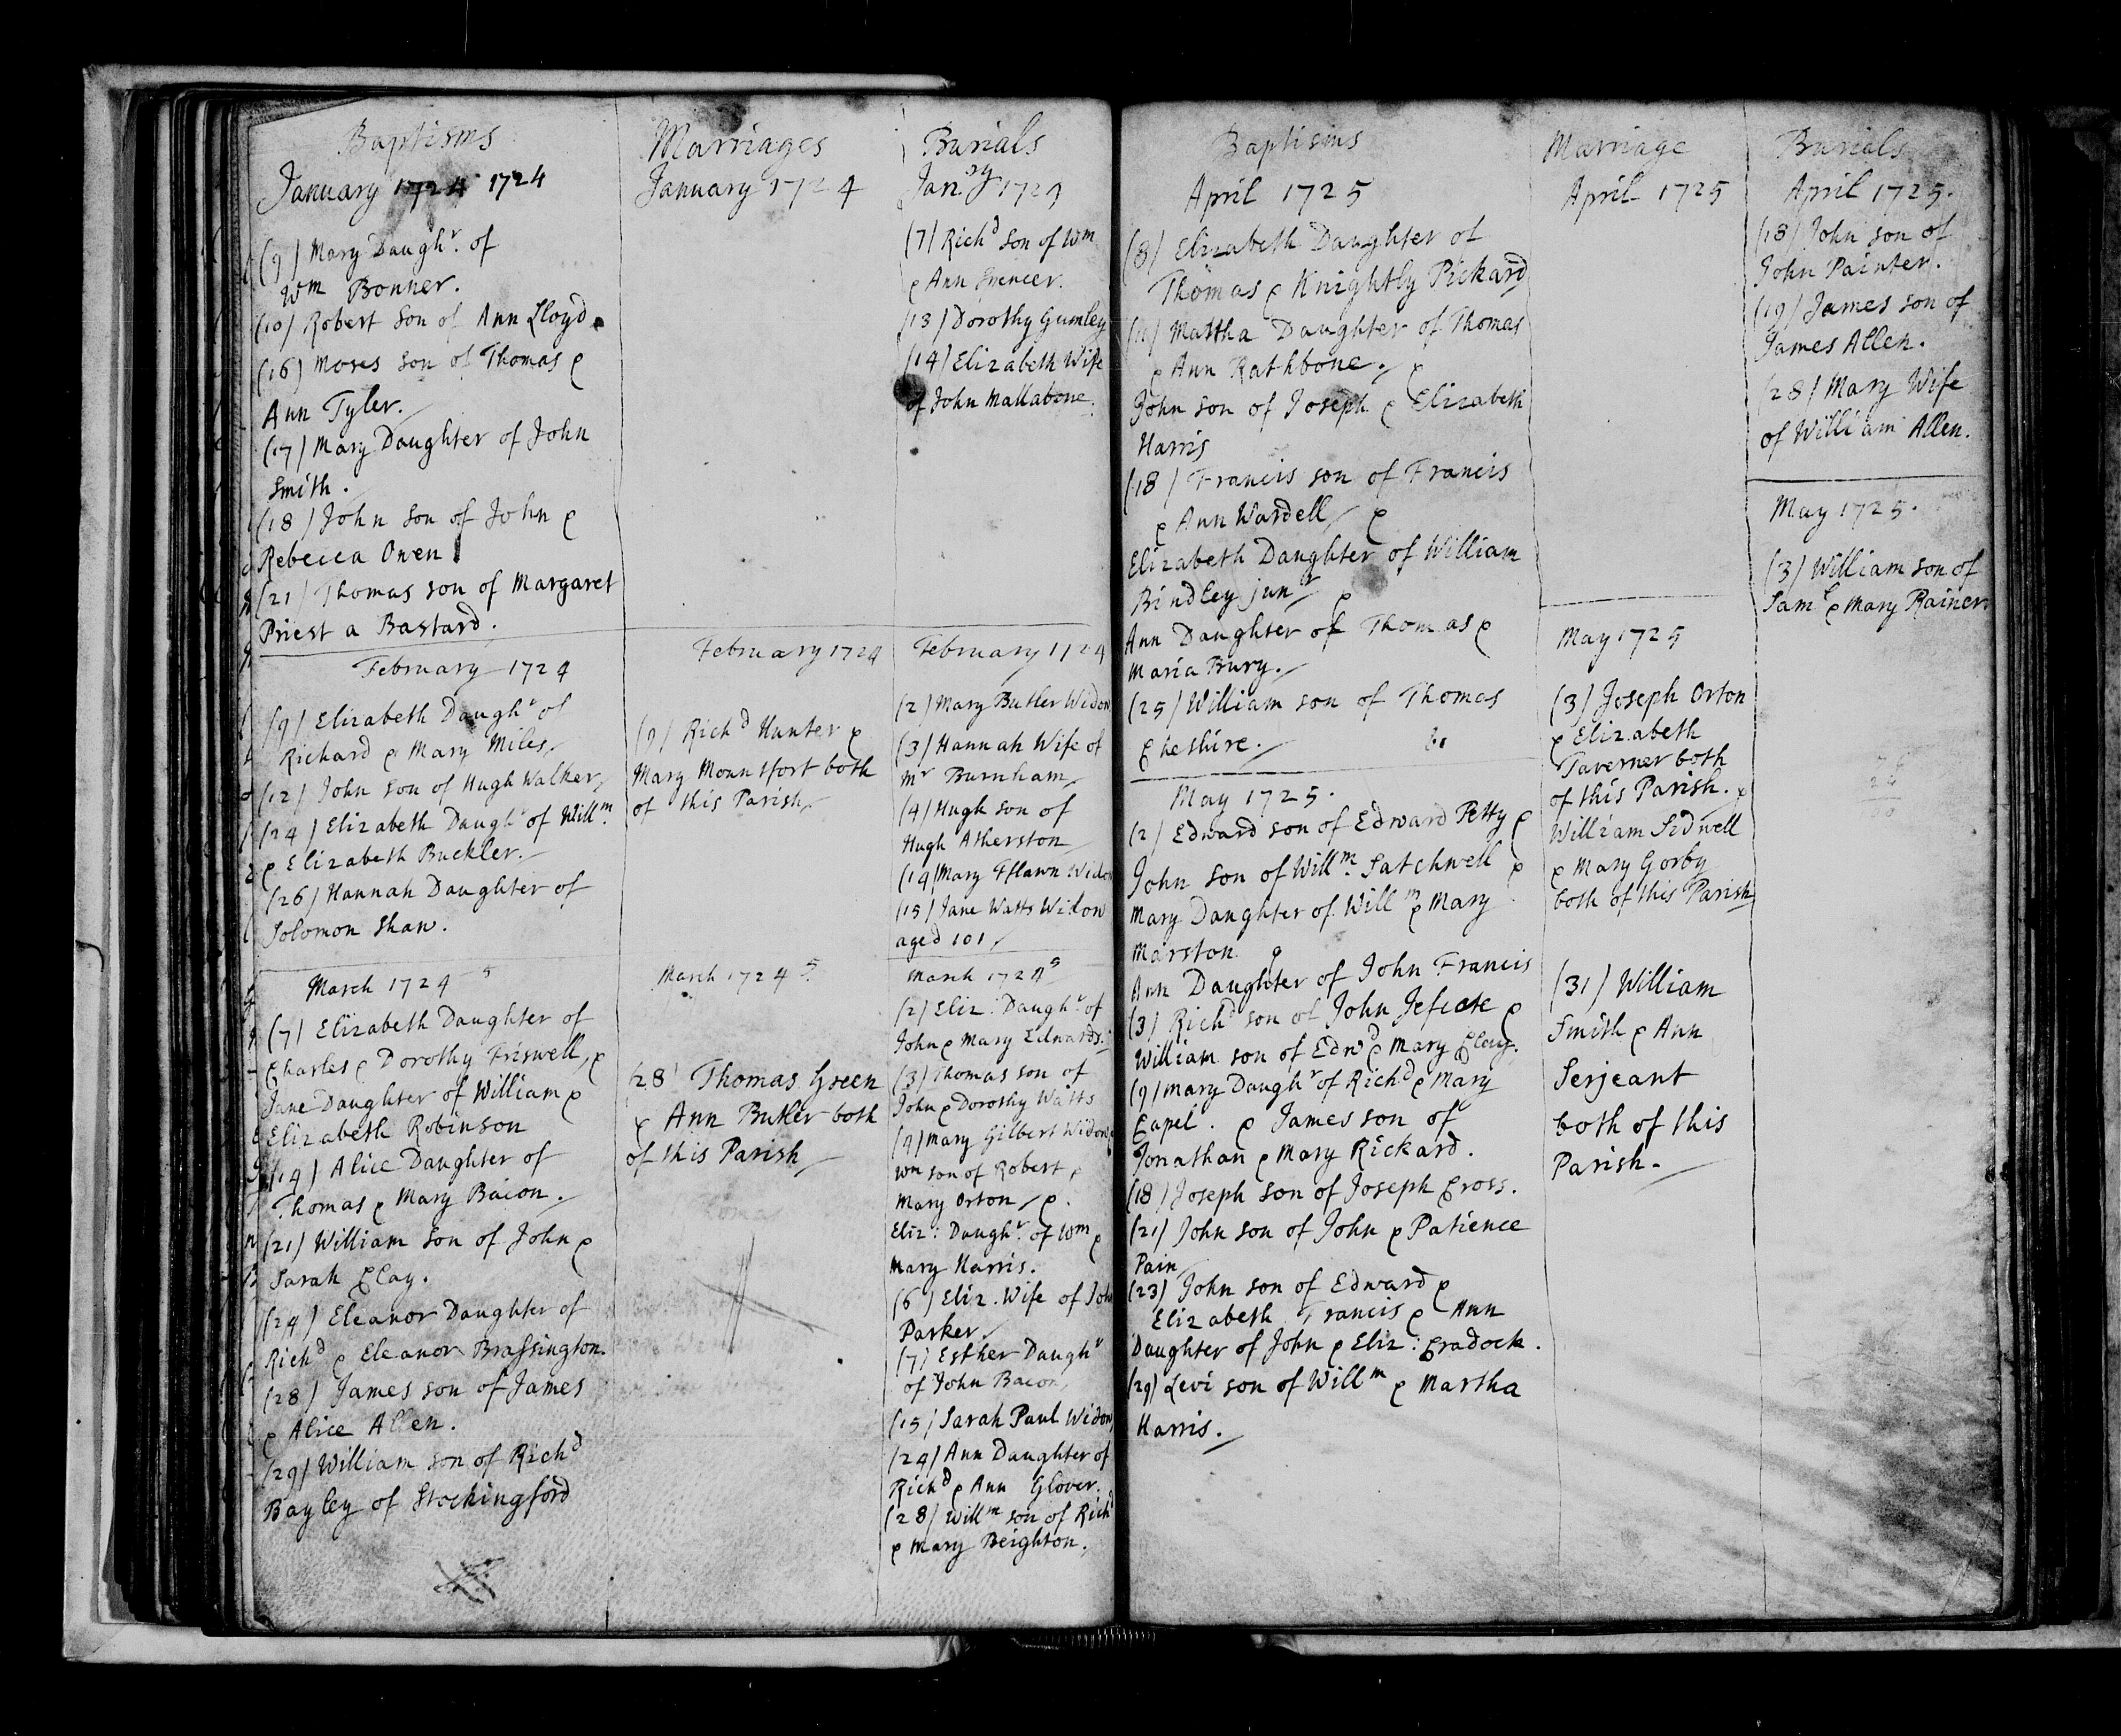 Baptisms
January 1724 1724
(9) Mary Daugh.r of
Wm Bonner.
(10) Robert Son of Ann Lloyd
(16) Moses Son of Thomas &
Ann Tyler.
(17) Mary Daughter of John
Smith.
(18) John Son of John &
Rebecca Owen
(21) Thomas Son of Margaret
Priest a Bastard.
February 1724
(9) Elizabeth Daugh.r of
Richard & Mary Miles
(12) John son of Hugh Walker
(24) Elizabeth Daugh.r of Will.m
& Elizabeth Buckler.
(26) Hannah Daughter of
Solomon Shaw.
March 1724 5
(7) Elizabeth Daughter of
Charles & Dorothy Friswell, &
Jane Daughter of William &
Elizabeth Robinson
(14) Alice Daughter of
Thomas & Mary Bacon.
(21) William Son of John &
Sarah Clay.
(24) Eleanor Daughter of
Rich.d & Eleanor Brassington.
(28) James son of James
& Alice Allen.
(29) William son of Rich.d
Bayley of Stockingford
Marriages
January 1724
February 1724
(9) Rich.d Hunter &
Mary Mountfort both
of this Parish
March 1724 5
28 Thomas Green
& Ann Butler both
of this Parish
Burials
Jan.ry 1724
(7) Rich.d Son of Wm
& Ann Spencer.
(13) Dorothy Gumley
(14) Elizabeth Wife
of John Mallabone.
February 1724
(2) Mary Butler Widow
(3) Hannah Wife of
Mr Burnham
(4) Hugh son of
Hugh Atherston
(14) Mary Widow
(15) Jane Watts Widow
aged 101
March 1724 5
(2) Eliz. Daugh.r of
John & Mary Edwards.
(3) Thomas son of
John & Dorothy Watts
(4) Mary Gilbert Widow &
Wm son of Robert &
Mary Orton &
Eliz: Daugh.r of Wm &
Mary Harris.
(6) Eliz. Wife of John
Parker.
(7) Esther Daugh.r
of John Bacon,
(15) Sarah Paul Widow
(24) Ann Daughter of
Rich.d & Ann Glover.
(28) Will.m son of Rich.d
& Mary Beighton.
Baptisms
April 1725
(8) Elizabeth Daughter of
Thomas & Knightly Pickard
(11) Martha Daughter of Thomas
& Ann Rathbone. &
John son of Joseph & Elizabeth
Harris
(18) Francis son of Francis
& Ann Wardell &
Elizabeth Daughter of William
Bindley jun.r &
Ann Daughter of Thomas &
Maria Bury.
(25) William son of Thomas
Cheshire.
May 1725.
(2) Edward son of Edward Petty &
John Son of Will.m Satchwell &
Mary Daughter of Will.m & Mary
Marston &
Ann Daughter of John Francis
(3) Rich.d son of John &
William son of Edw.d & Mary Clay.
(9) Mary Daugh.r of Rich.d & Mary
Capel. & James son of
Jonathan & Mary Rickard.
(18) Joseph Son of Joseph Cross.
(21) John son of John & Patience
Pain
(23) John son of Edward &
Elizabeth Francis & Ann
Daughter of John & Eliz: Cradock.
(29) Levi son of Will.m & Martha
Harris.
Marriage
April 1725
May 1725
(3) Joseph Orton
& Elizabeth
Taverner both
of this Parish. &
William Sidwell
& Mary Gorby
both of this Parish
(31) William
Smith & Ann
Serjeant
both of this
Parish.
Burials
April 1725.
(18) John son of
John Painter.
(19) James son of
James Allen.
(28) Mary Wife
of William Allen.
May 1725.
(3) William son of
Sam.l & Mary Rainer